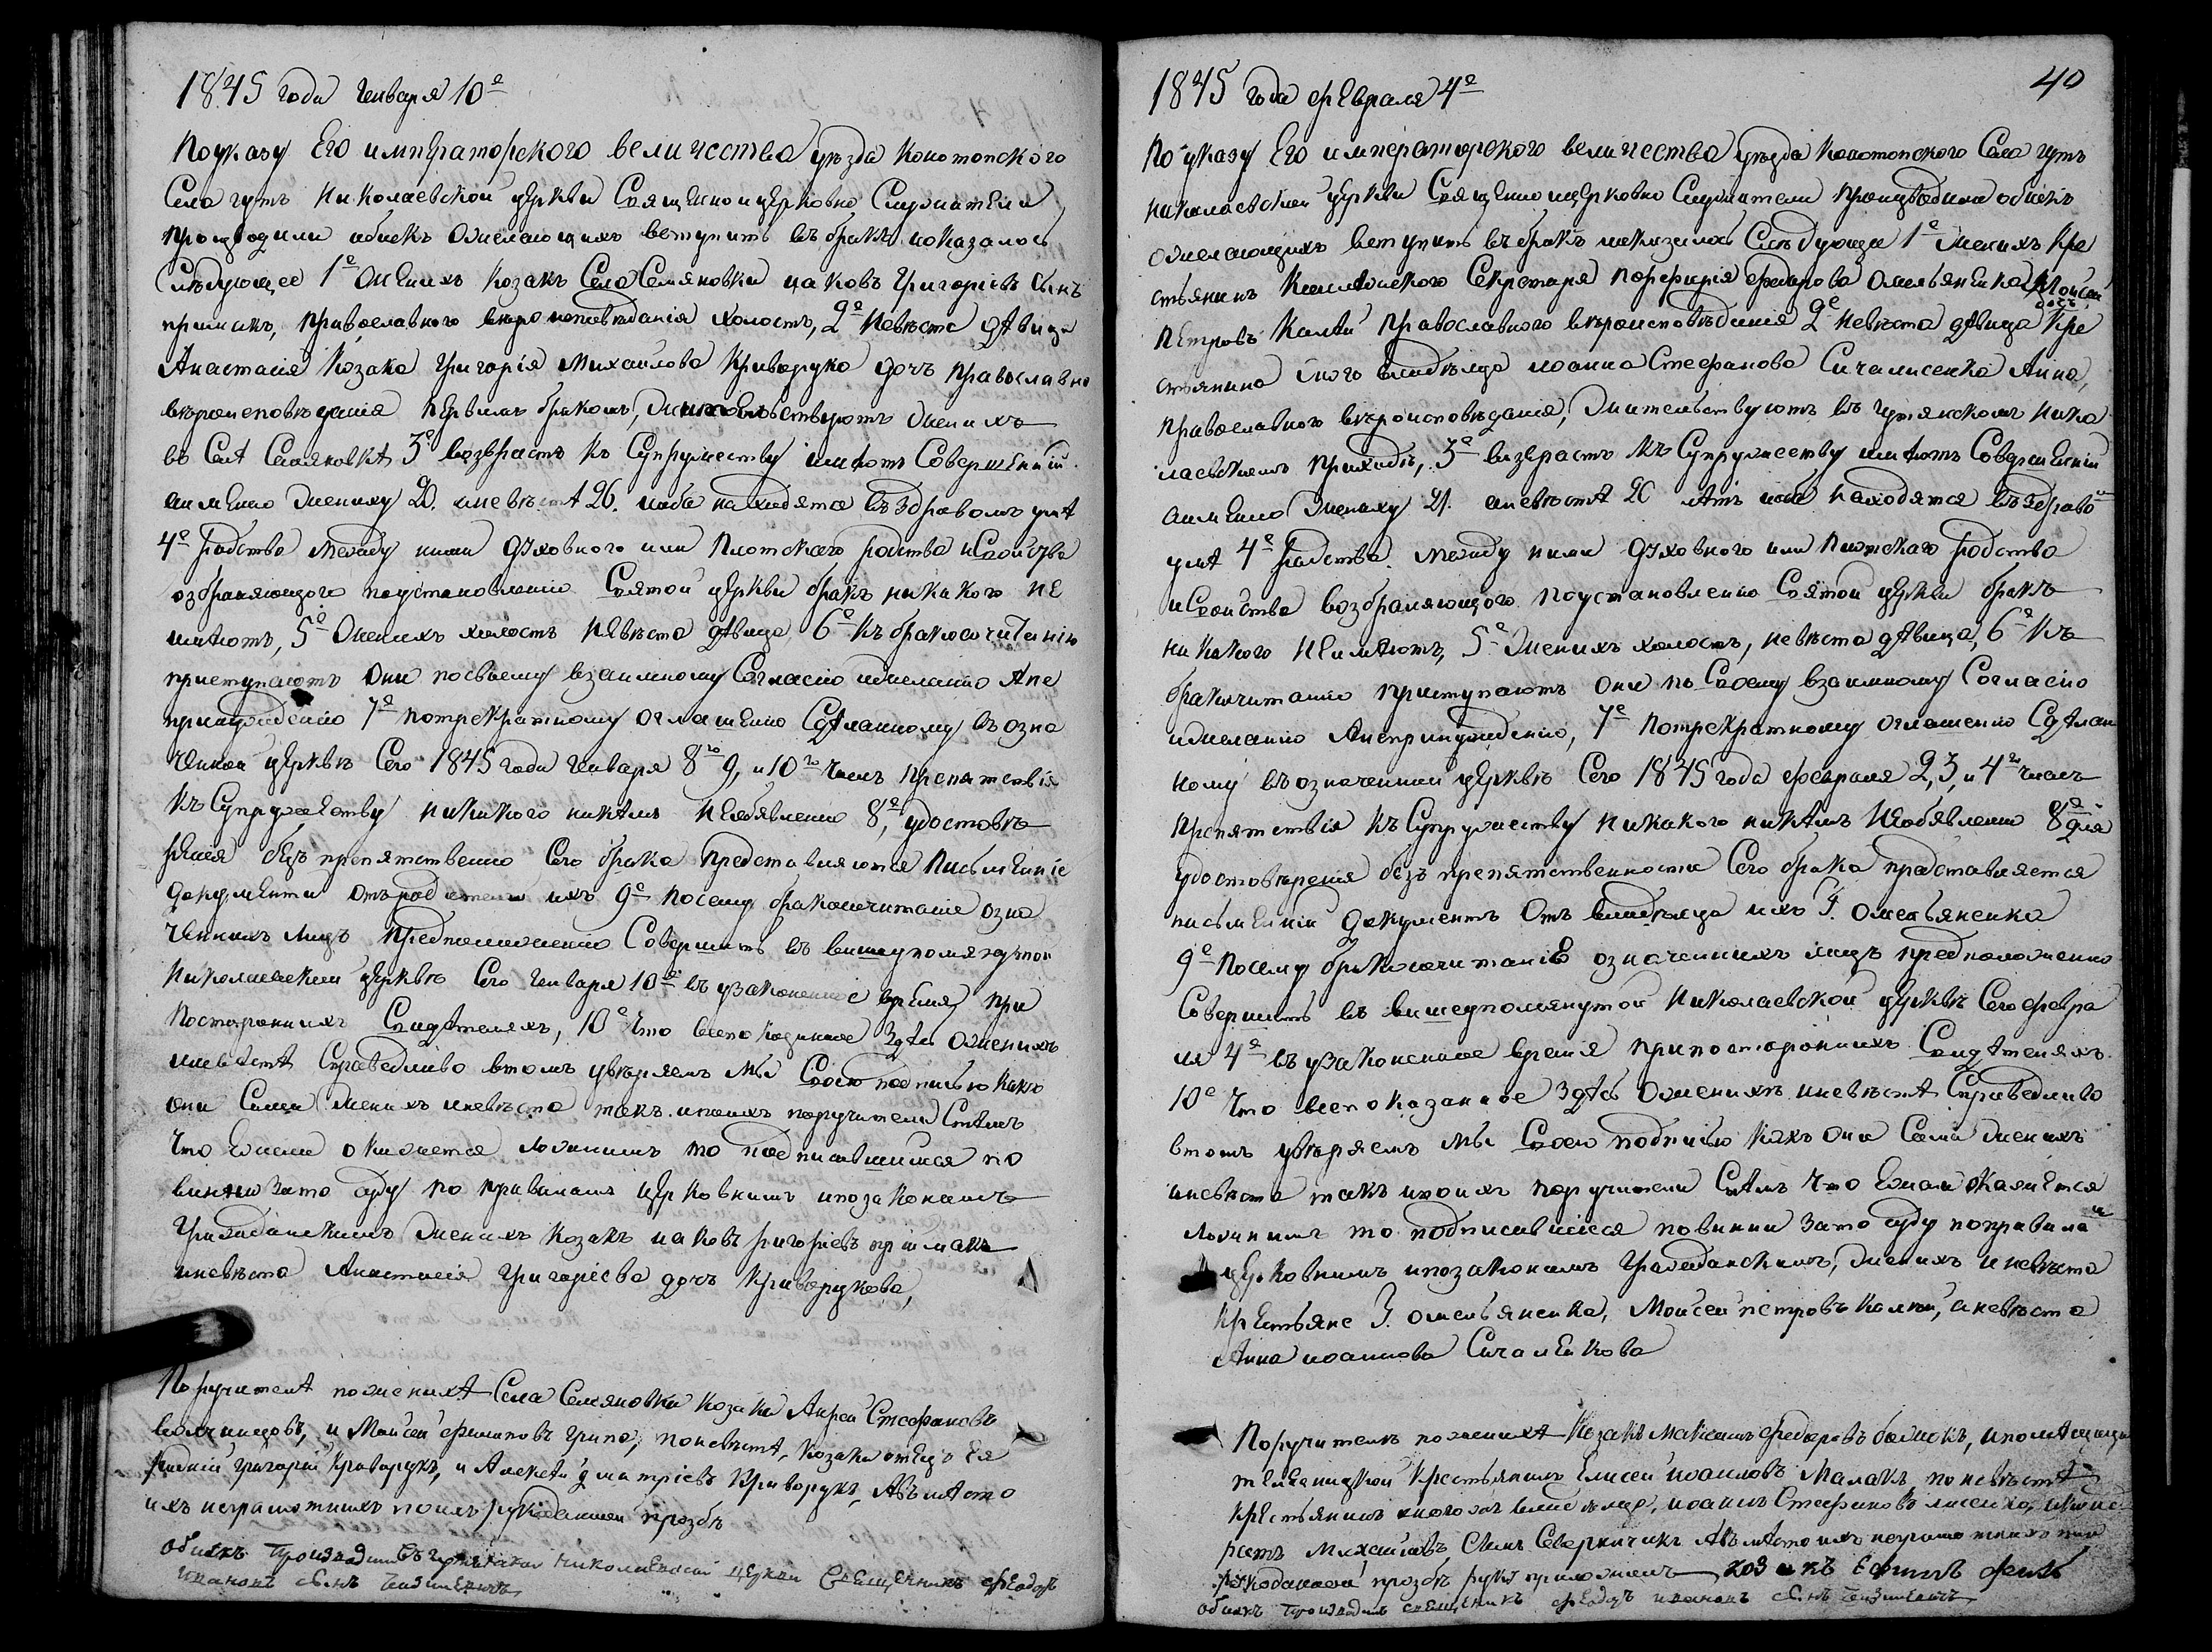 1845 года генваря 10е
По указу Его императорского величества уезда Конотопского
Села гутъ Николаевской церкви Священно и церковно Служители
производили обискъ о желающихъ вступить въ бракъ и оказалось
Следующее 1е Женихъ козакъ Села Семяновки иаковъ Григориевъ сынъ
примакъ, православного вероисповеданія холостъ, 2е Невеста девица
Анастасія Козака Григорія Михаилова Криворука дочь православно
вероисповеданія первымъ бракомъ, жительствуютъ женихъ
въ Селе Семяновке 3е возврастъ къ Супружеству имеютъ Совершенній
аименно жениху 20. аневесте 26. иоба находятся въ здравомъ уме
4е Родства между ними духовного или Плотского родства и Свойства
озбраняющого поустановленію Святой церкви бракъ никакого не
имеютъ, 5е Женихъ холостъ Невеста девица, 6е къ бракосочитанію
приступаютъ они посвоему взаимному Согласію ижеланію Ане
принуждению 7е потрекратному оглашенію Сделанному въ озна
ченной церкве Сего 1845 года генваря 8го 9, и 10го чиселъ препятствія
къ Супружеству никакого никемъ необявлено 8е, удостове
ренія безъ препятственно Сего брака Представляются письменніе
документи отъ родителей ихъ 9е посему бракосочитаніе озна
ченнихъ лицъ предположенно Совершить въ вишеупомянутой
Николаевской церкве Сего генваря 10го въ узаконенное время при
постороннихъ Свидетеляхъ, 10е что все показанное здесь о женихе
иневесте Справедливо втомъ уверяемъ мы Своею подписью какъ
они Сами женихъ иневеста такъ ипоихъ поручители Стемъ
что Ежели окажется ложнимъ то подписавшиеся по
винни зато суду по правиламъ церковнимъ ипозаконамъ
Гражданскимъ женихъ козакъ иаковъ григориевъ примакъ
иневеста Анастасія григориева дочь Криворукова,
Поручителе поженихе Села Семяновки козаки Андреи Стефановъ
и Моисей Филиповъ грипа, поневесте, козаки отецъ Ея
Григорій Криворукъ, и Алексей дматріевъ Криворукъ, Авъместо
ихъ неграмотнихъ поихъ рукоданной прозбе
обискъ производилъ Гутянской Николаевской церкви Священникъ Феодоръ
Ивановъ сынъ
40
1845 года февраля 4е
По указу Его императорского величества уезда Конотопского Села гутъ
николаевской церкви Священно ицерковно Служители производили обискъ
ожелающихъ вступить въ бракъ иоказалось Следующее 1е Женихъ Кре
стьянинъ Секретаря Порфирія Федорова Омельяненка Моисей
Петровъ Калпій Православного вероисповеданія 2е Невеста девица Кре
стянина тогожъ владельца иоанна Стефанова Анна,
православного вероисповеданія, Жительствуютъ въ гутянскомъ Нико
лаевскомъ приходе, 3е возврастъ къ Супружеству имеютъ Совершенній
аименно жениху 21. аневесте 20 летъ иоба находятся въ здравомъ
уме 4е Родства. между ними духовного или Плотского родства
иСвойства возбраняющого поустановленію Святой церкви бракъ
никакого Неимеютъ, 5е Женихъ холостъ, невеста девица, 6е Къ
бракочитанію приступаютъ они по Своему взаимному Согласію
ижеланію Анепринуждению, 7е Потрекратному оглашенію Сделан
ному въ означенной церкве Сего 1845 года февраля 2, 3, и 4го чиселъ
препятствія къ Супружеству никакого никемъ Необявлено 8е для
удостоверенія безъ препятственности Сего брака представляется
письменній документъ отъ владельца ихъ Г. омельяненка
9е Посему бракосочитаніе означеннихъ лицъ предположенно
Совершить въ вишеупомянутой Николаевской церкве Сего февра
ля 4е въ узаконенное время припостороннихъ Свидетеляхъ
10е что все показанное здесь о женихе иневесте Справедливо
втомъ уверяемъ мы Своею подписью какъ они Сами женихъ
иневеста такъ ипоихъ поручители Стемъ что Ежели окажется
ложнимъ то подписавшіеся повинни зато суду поправила
церковнимъ ипозаконамъ гражданскимъ, женихъ иневеста
Крестьяне Г. омельяненка, Моисей петровъ Калпій, аневеста
Анна иоаннова
Поручители поженихе Козакъ Максимъ Федоровъ, ипомещици
Крестьянинъ Елисей иоанновъ Малахъ, поневесте
Крестьянинъ тогожъ владельца, иоаннъ Стефановъ
Михайловъ Сынъ Авъместо ихъ неграмотнихъ поихъ
рукоданной прозбе руку приложилъ Ефимъ
обискъ производилъ священикъ Феодоръ ивановъ сынъ